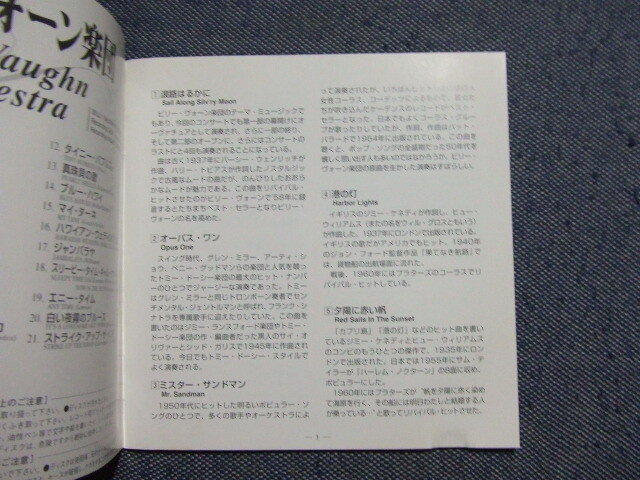 オーン楽団
Vaughn
estra
12. タイニー・
13. 真珠貝の歌
14. ブルー・ハワイ
15. マイ・ターネ
16. ハワイアン・ウェディング
17. ジャンバラヤ
18. スリーピー・タイム・
19. エニー・タイム
20. 白い夜霧のブルース
21. ストライク・アップ・
上のご注意]
ご注意]
1 浪路はるかに
Sail Along Silv'ry Moon
ビリー・ヴォーン楽団のテーマ・ミュージックで
もあり、今回のコンサートでも第一部の幕開けにオ
ーヴァチュアとして演奏され、さらに一部の終り、
そして第二部のオープンに、さらにはコンサートの
ラストにと4回も演奏されることになっている。
曲は古く1937年にパーシー・ウェンリッチが
作曲、ハリー・トビアスが作詞したノスタルジッ
クで古風なムードの曲だが、のんびりしたおおら
かなムードが魅力である。この曲をリバイバル・
ヒットさせたのがビリー・ヴォーンで'58年に録
音するとたちまちベスト・セラーとなりビリー・
ヴォーンの名を高めた。
2 オーパス・ワン
Opus One
スイング時代、グレン・ミラー、アーティ・シ
ョウ、ベニー・グッドマンらの楽団と人気を競っ
たトミー・ドーシー楽団の最大のヒット・ナンバ
ーのひとつでジャージーな演奏であった。トミー
はグレン・ミラーと同じトロンボーン奏者でセン
チメンタル・ジェントルマンと呼ばれ、フランク・
シナトラを専属歌手に迎えたりしていた。この曲
を書いたのはジミー・ランスフォード楽団やトミー・
ドーシー楽団の作・編曲者だった黒人のサイ・オ
リヴァーとシッド・ガリスで1945年に作曲され
ている。今日でもトミー・ドーシー・スタイルで
よく演奏される。
3 ミスター・サンドマン
Mr. Sandman
1950年代にヒットした明るいポピュラー・ソン
グのひとつで、多くの歌手やオーケストラによ
って演奏されたが、
が吹き込んだケーデンスのレコードがベスト・
セラーとなった。日本でもよくコーラス・グルー
プが歌ったりしていたが、作詞、作曲はパット・
バラードで1954年に出版されている。この曲を
聴くと、ポップ・ソングの全盛期だった50年代を
懐しく思い出す人も多いのではなかろうか。ビリー・
ヴォーン楽団の原曲を生かした演奏はすばらしい。
4 港の灯
Harbor Lights
イギリスのジミー・ケネディが作詞し、ヒュー・
ウィリアムス(またの名をウィル・グロスともいう)
が作曲した。1937年にロンドンで出版されている。
イギリスの歌だがアメリカでもヒット。1940年
のジョン・フォード監督作品「果てなき航路」で
は、貨物船の出航場面に流れた。
戦後、1960年にはプラターズのコーラスでリ
バイバル・ヒットしている。
5 夕陽に赤い帆
Red Sails In The Sunset
「カプリ島」「港の灯」などのヒット曲を書い
ているジミー・ケネディとヒュー・ウィリアムス
のコンビのもうひとつの傑作で、1935年にロン
ドンで出版された。日本では1955年にサム・テ
イラーが「ハーレム・ノクターン」のB面に収め、
ポピュラーにした。
1960年にはプラターズが"帆を夕陽に赤く染め
て海原を行く、その船には明日わたしと結婚する人
が乗っている…"と歌ってリバイバル・ヒットさせた。
— 1 —